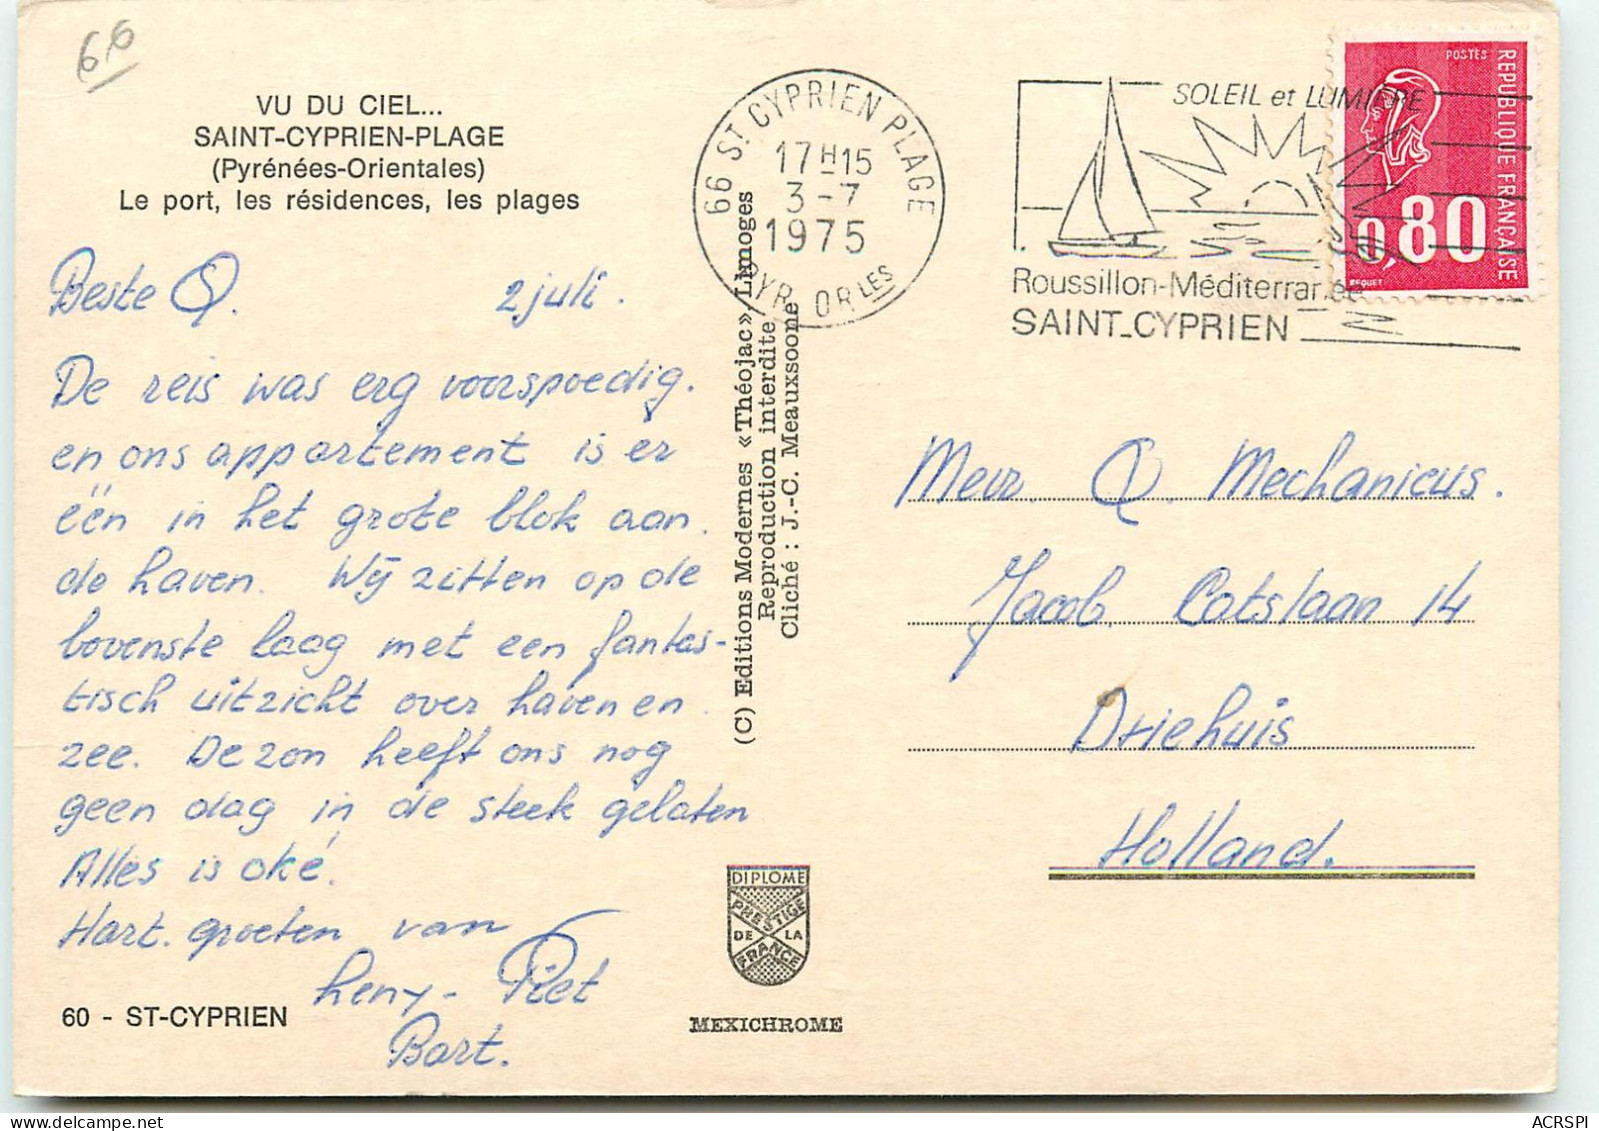 66
VU DU CIEL...
SAINT-CYPRIEN-PLAGE
(Pyrénées-Orientales)
Le port, les résidences, les plages
Beste Q. 2 juli.
De reis was erg voorspoedig.
en ons appartement is er
één in het grote blok aan.
de haven. Wij zitten op de
bovenste laag met een fantas-
tisch uitzicht over haven en
zee. De zon heeft ons nog
geen dag in de steek gelaten
Alles is oké.
Hart. groeten van
Heny - Piet
Bart.
60 - ST-CYPRIEN
(C) Editions Modernes «Théojac» Limoges
Reproduction interdite
Cliché : J.-C. Meauxsoone
DIPLOME
PRESTIGE
DE LA
FRANCE
MEXICHROME
66 ST CYPRIEN PLAGE
17H15
3-7
1975
PYR. ORLES
SOLEIL et LUMIERE
Roussillon-Méditerranée
SAINT-CYPRIEN
POSTES
REPUBLIQUE FRANÇAISE
0,80
BEQUET
Mevr. Q. Mechanicus.
Jacob. Catslaan 14
Driehuis
Holland.
ACRSPI